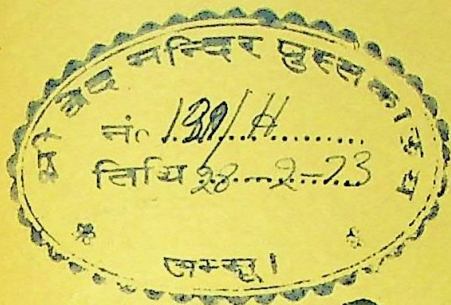 श्री वेद मन्दिर पुस्तकालय
नं० 139/H
तिथि 28-2-73
जम्मू।